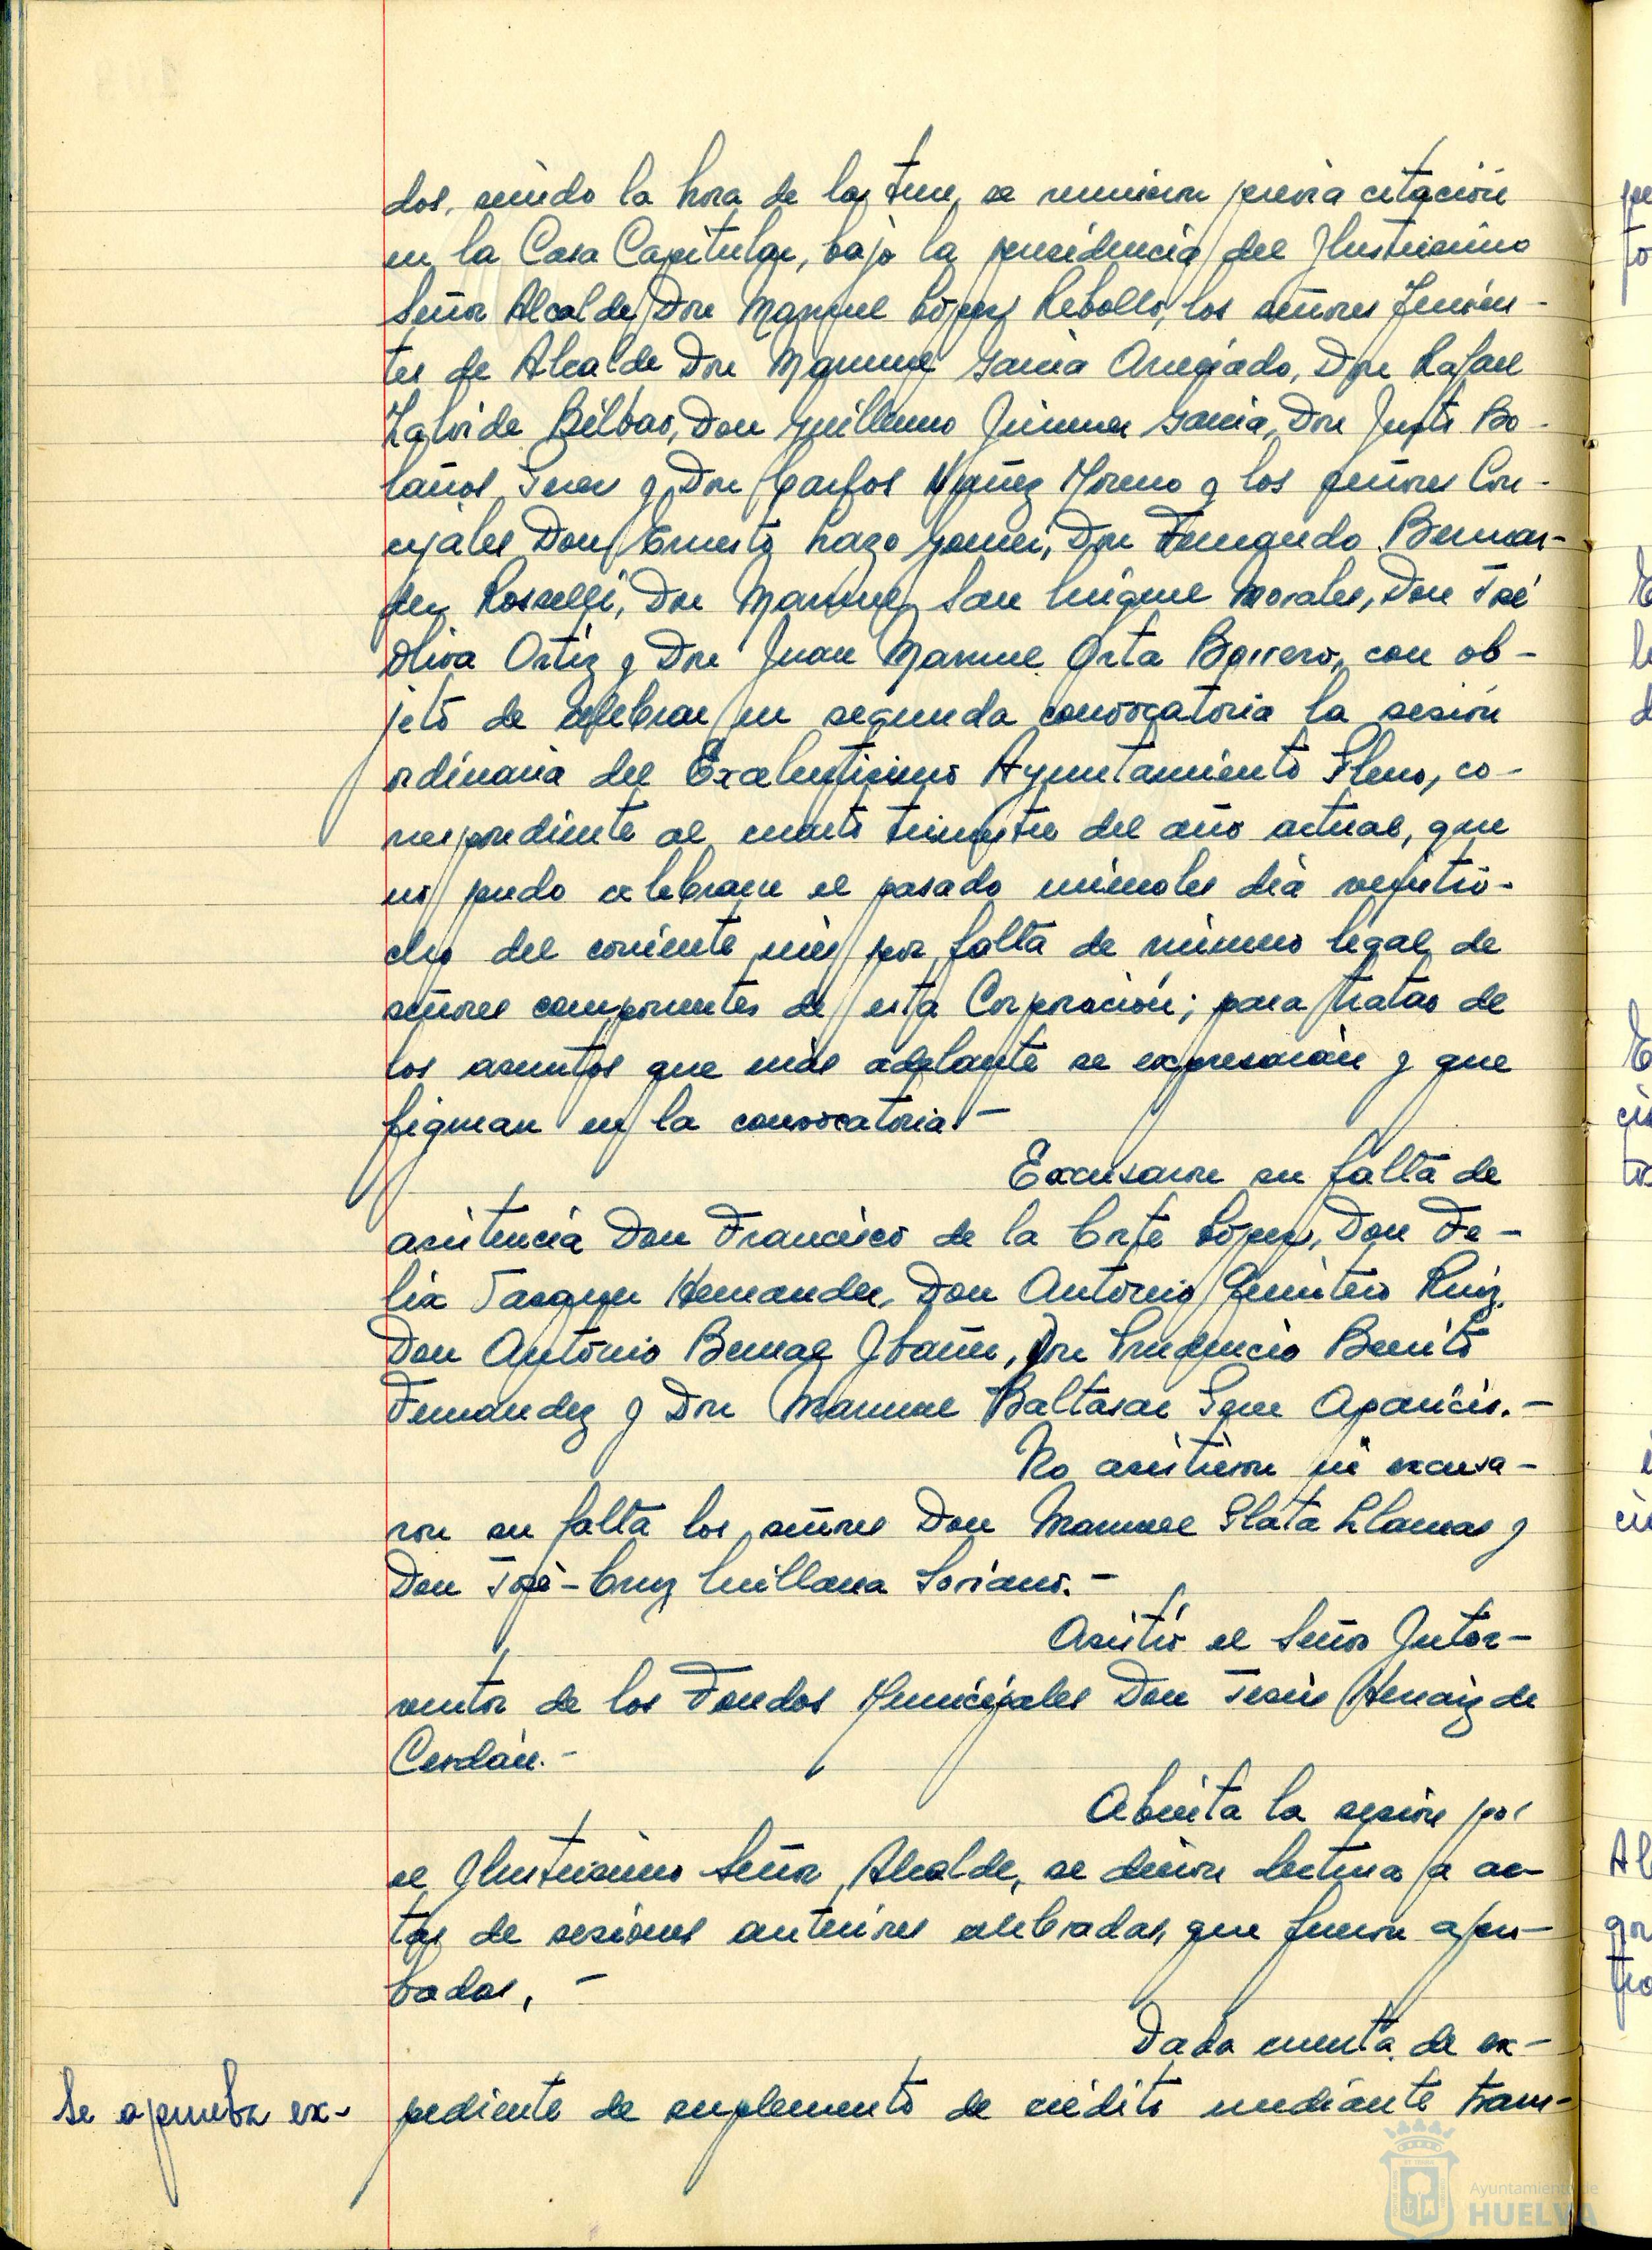 dos, siendo la hora de las trece, se reunieron previa citación
en la Casa Capitular, bajo la presidencia del Ilustrisimo
Señor Alcalde Don Manuel López Rebollo, los señores Tenien-
tes de Alcalde Don Manuel Garcia Don Rafael
Bilbao, Don Guillermo Jimenez Garcia, Don Justo Bo-
laños Perez y Don Carlos Nuñez Moreno y los señores Con-
cejales Don Ernesto Lazo Gomez, Don Fernando Bernar-
dez Rosselli, Don Manuel San Miguel Morales, Don José
Oliva Ortiz y Don Juan Manuel Orta Borrero, con ob-
jeto de celebrar en segunda convocatoria la sesión
ordinaria del Excelentisimo Ayuntamiento Pleno, co-
rrespondiente al cuarto trimestre del año actual, que
no pudo celebrarse el pasado miercoles dia veintio-
cho del corriente mes por falta de número legal de
señores componentes de esta Corporación; para tratar de
los asuntos que más adelante se expresarán y que
figuran en la convocatoria.-
Excusaron su falta de
asistencia Don Francisco de la Corte López, Don Fe-
lix Hernandez, Don Antonio Quintero Ruiz,
Don Antonio Bernal Ibañez, Don Prudencio Benito
Fernandez y Don Manuel Baltasar Aparicio.-
No asistieron ni excusa-
ron su falta los señores Don Manuel Plata Llamas y
Don José-Cruz Millana Soriano.-
Asistió el Señor Inter-
ventor de los Fondos Municipales Don Jesús Henaiz de
Cerdán.-
Abierta la sesión por
el Ilustrisimo Señor Alcalde, se dieron lectura a ac-
tas de sesiones anteriores celebradas, que fueron apro-
badas.-
Dada cuenta de ex-
Se aprueba ex- pediente de suplemento de crédito mediante trans-
Ayuntamiento de
HUELVA